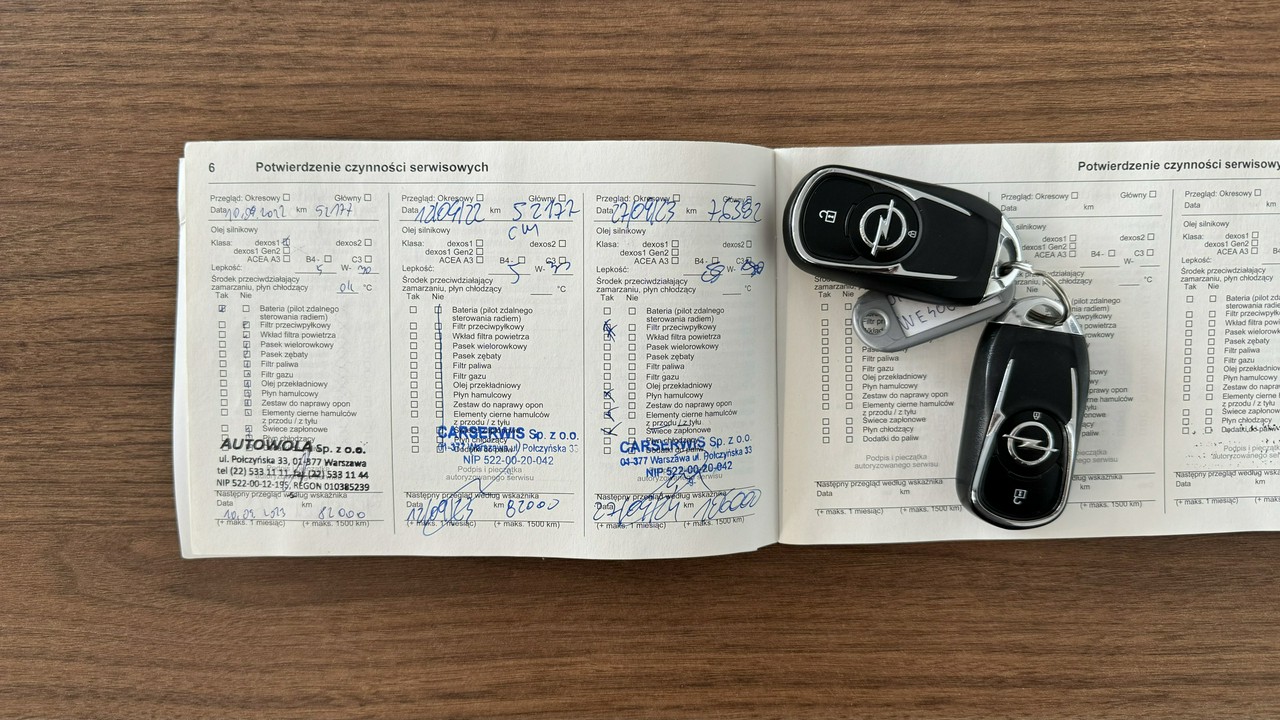 6 Potwierdzenie czynności serwisowych
Przegląd: Okresowy Główny
Data 10.09.2022 km 52177
Olej silnikowy
Klasa: dexos1 dexos2
dexos1 Gen2
ACEA A3 B4- C3
Lepkość: 5 W- 30
Środek przeciwdziałający
zamarzaniu, płyn chłodzący °C
Tak Nie
Bateria (pilot zdalnego
sterowania radiem)
Filtr przeciwpyłkowy
Wkład filtra powietrza
Pasek wielorowkowy
Pasek zębaty
Filtr paliwa
Filtr gazu
Olej przekładniowy
Płyn hamulcowy
Zestaw do naprawy opon
Elementy cierne hamulców
z przodu / z tyłu
Świece zapłonowe
AUTOWOLA Sp. z o.o.
ul. Połczyńska 33, 01-377 Warszawa
tel (22) 533 11 11, (22) 533 11 44
NIP 522-00-12-195, REGON 010385239
Następny przegląd według wskaźnika
Data km
10.09.2023 82000
(+ maks. 1 miesiąc) (+ maks. 1500 km)
Przegląd: Okresowy Główny
Data 12/09/22 km 52177
Olej silnikowy
Klasa: dexos1 dexos2
dexos1 Gen2
ACEA A3 B4- C3
Lepkość: 5 W- 30
Środek przeciwdziałający
zamarzaniu, płyn chłodzący °C
Tak Nie
Bateria (pilot zdalnego
sterowania radiem)
Filtr przeciwpyłkowy
Wkład filtra powietrza
Pasek wielorowkowy
Pasek zębaty
Filtr paliwa
Filtr gazu
Olej przekładniowy
Płyn hamulcowy
Zestaw do naprawy opon
Elementy cierne hamulców
z przodu / z tyłu
CARSERWIS Sp. z o.o.
01-377 Warszawa ul. Połczyńska 33
NIP 522-00-20-042
Podpis i pieczątka
autoryzowanego serwisu
Następny przegląd według wskaźnika
Data km
12/09/23 82000
(+ maks. 1 miesiąc) (+ maks. 1500 km)
Przegląd: Okresowy Główny
Data 27/09/23 km 76382
Olej silnikowy
Klasa: dexos1 dexos2
dexos1 Gen2
ACEA A3 B4- C3
Lepkość: W-
Środek przeciwdziałający
zamarzaniu, płyn chłodzący °C
Tak Nie
Bateria (pilot zdalnego
sterowania radiem)
Filtr przeciwpyłkowy
Wkład filtra powietrza
Pasek wielorowkowy
Pasek zębaty
Filtr paliwa
Filtr gazu
Olej przekładniowy
Płyn hamulcowy
Zestaw do naprawy opon
Elementy cierne hamulców
z przodu / z tyłu
Świece zapłonowe
CARSERWIS Sp. z o.o.
01-377 Warszawa ul. Połczyńska 33
NIP 522-00-20-042
Następny przegląd według wskaźnika
Data km
27/09/24
(+ maks. 1 miesiąc) (+ maks. 1500 km)
Potwierdzenie czynności
Tak Nie
Pasek zębaty
Filtr paliwa
Filtr gazu
Olej przekładniowy
Płyn hamulcowy
Zestaw do naprawy opon
Elementy cierne hamulców
z przodu / z tyłu
Świece zapłonowe
Płyn chłodzący
Dodatki do paliw
Podpis i pieczątka
autoryzowanego serwisu
Następny przegląd według wskaźnika
Data km
(+ maks. 1 miesiąc) (+ maks. 1500 km)
Przegląd: Okresowy Główny
km
dexos1 dexos2
dexos1 Gen2
ACEA A3 B4- C3
W-
°C
Bateria (pilot zdalnego
sterowania radiem)
Filtr przeciwpyłkowy
Wkład filtra powietrza
Pasek wielorowkowy
Pasek zębaty
Filtr paliwa
Filtr gazu
Olej przekładniowy
Płyn hamulcowy
Zestaw do naprawy opon
Elementy cierne hamulców
z przodu / z tyłu
Świece zapłonowe
Płyn chłodzący
Dodatki do paliw
Podpis i pieczątka
autoryzowanego serwisu
Następny przegląd według wskaźnika
km
(+ maks. 1 miesiąc) (+ maks. 1500 km)
Przegląd: Okresowy
Data
Olej silnikowy
Klasa: dexos1
dexos1 Gen2
ACEA A3
Lepkość:
Środek przeciwdziałający
zamarzaniu, płyn chłodzący
Tak Nie
Bateria
Filtr
Wkład
Pasek
Pasek
Filtr
Filtr
Olej
Płyn
Zestaw
z przodu
Świece
Następny przegląd
Data
(+ maks. 1 miesiąc)